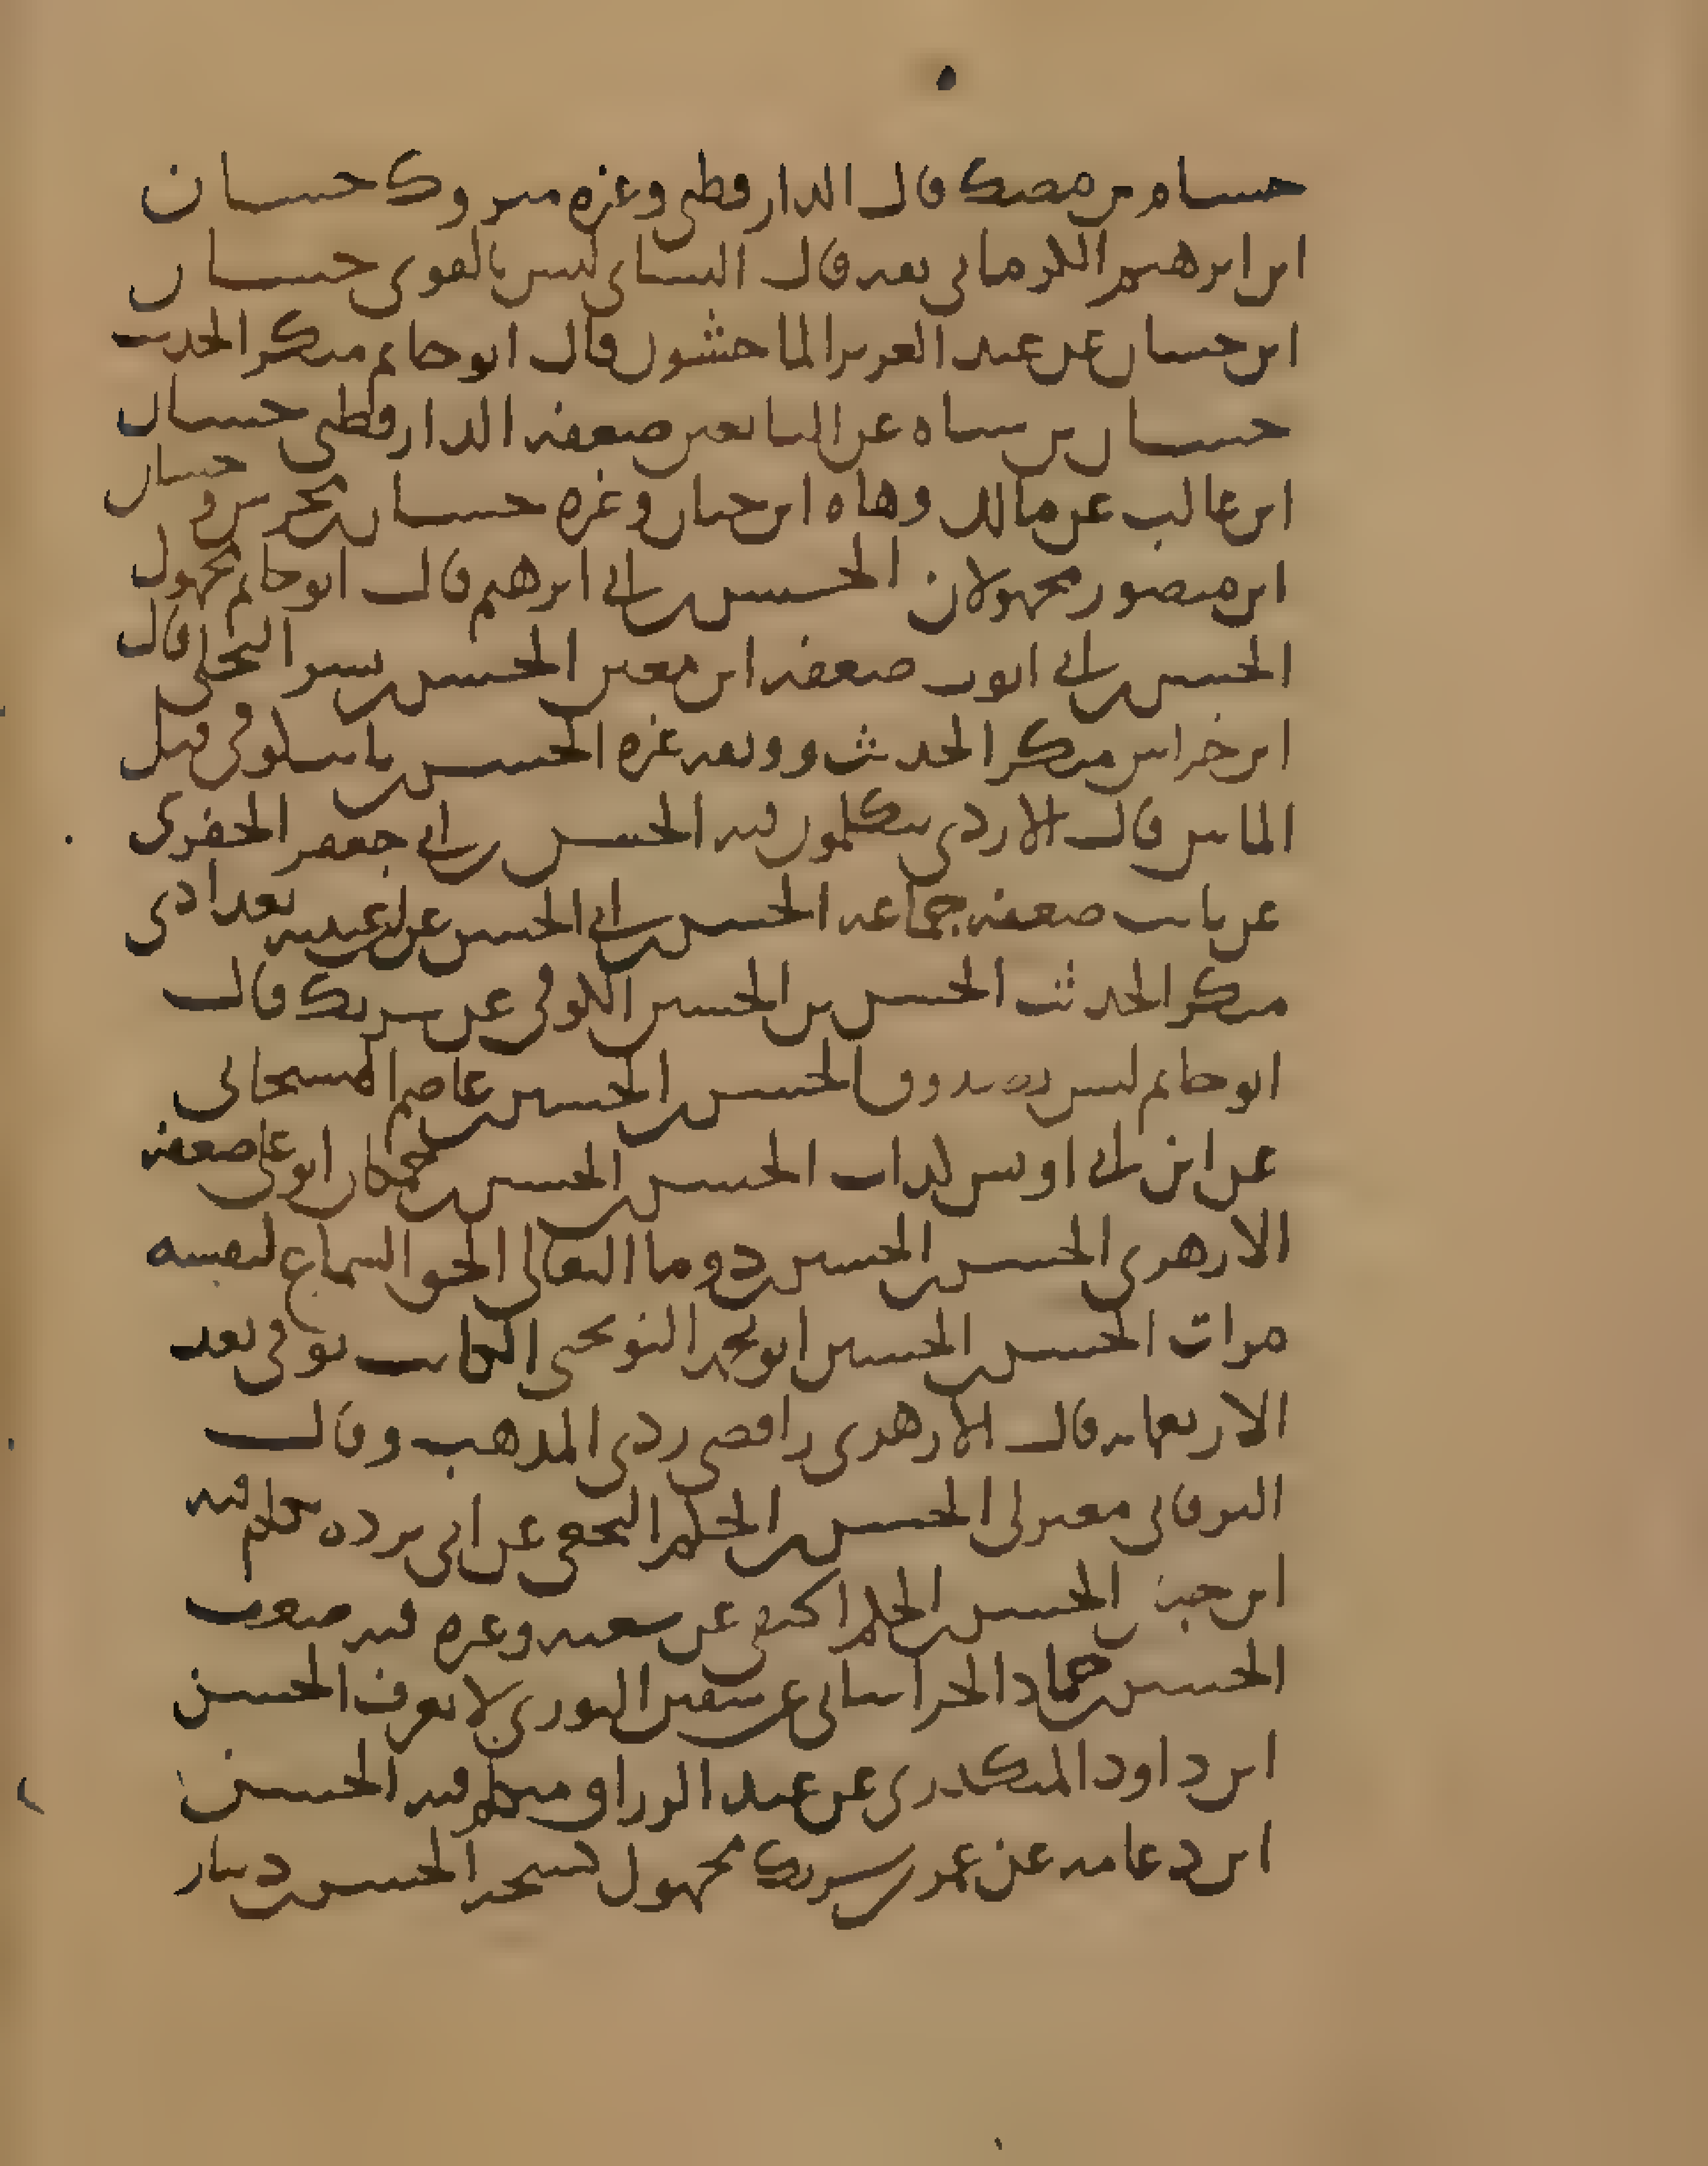 حسام بن مصك قال الدارقطني وغيره متروك حسان
ابن ابرهيم الكرماني ثقه قال النسائي ليس بالقوي حسان
ابن حسان عن عبد العزيز الماجشون قال ابو حاتم منكر الحديث
حسان بن سياه عن التابعين ضعفه الدارقطني حسان
ابن غالب عن مالك وهاه ابن حبان وغيره حسان بن محرس و حسان
ابن منصور مجهولان الحسن بن ابي ابرهيم قال ابو حاتم مجهول
الحسن بن ابي ايوب ضعفه ابن معين الحسن بن بشر البجلي قال
ابن خراش منكر الحديث ووثقه غيره الحسن بن ثابت كوفي قبل
المايتين قال الازدي يتكلمون فيه الحسن بن ابي جعفر الجفري
عن ثابت ضعفه جماعه الحسن بن ابي الحسن عن ابن عيينه بغدادي
منكر الحديث الحسن بن الحسين الكوفي عن شريك قال
ابو حاتم ليس بصدوق الحسن بن الحسين بن عاصم الهسنجاني
عن ابن ابي اويس كذاب الحسن بن الحسين بن حمكان ابو علي ضعفه
الازهري الحسن بن الحسين بن دوما النعالي الحق السماع لنفسه
مرات الحسن بن الحسين ابو محمد النوبختي الكاتب توفي بعد
الاربعمايه قال الازهري رافضي ردي المذهب وقال
البرقاني معتزلي الحسن بن الحكم النخعي عن ابي برده تكلم فيه
ابن حبن الحسن بن الحكم اكتفي عن شعبه وغيره فيه ضعف
الحسن بن حماد الخراساني عن سفين الثوري لا يعرف الحسن
ابن داود المنكدري عن عبد الرزاق متكلم فيه الحسن
ابن دعامه عن عمر بن شريك مجهول كشيخه الحسن بن دينار